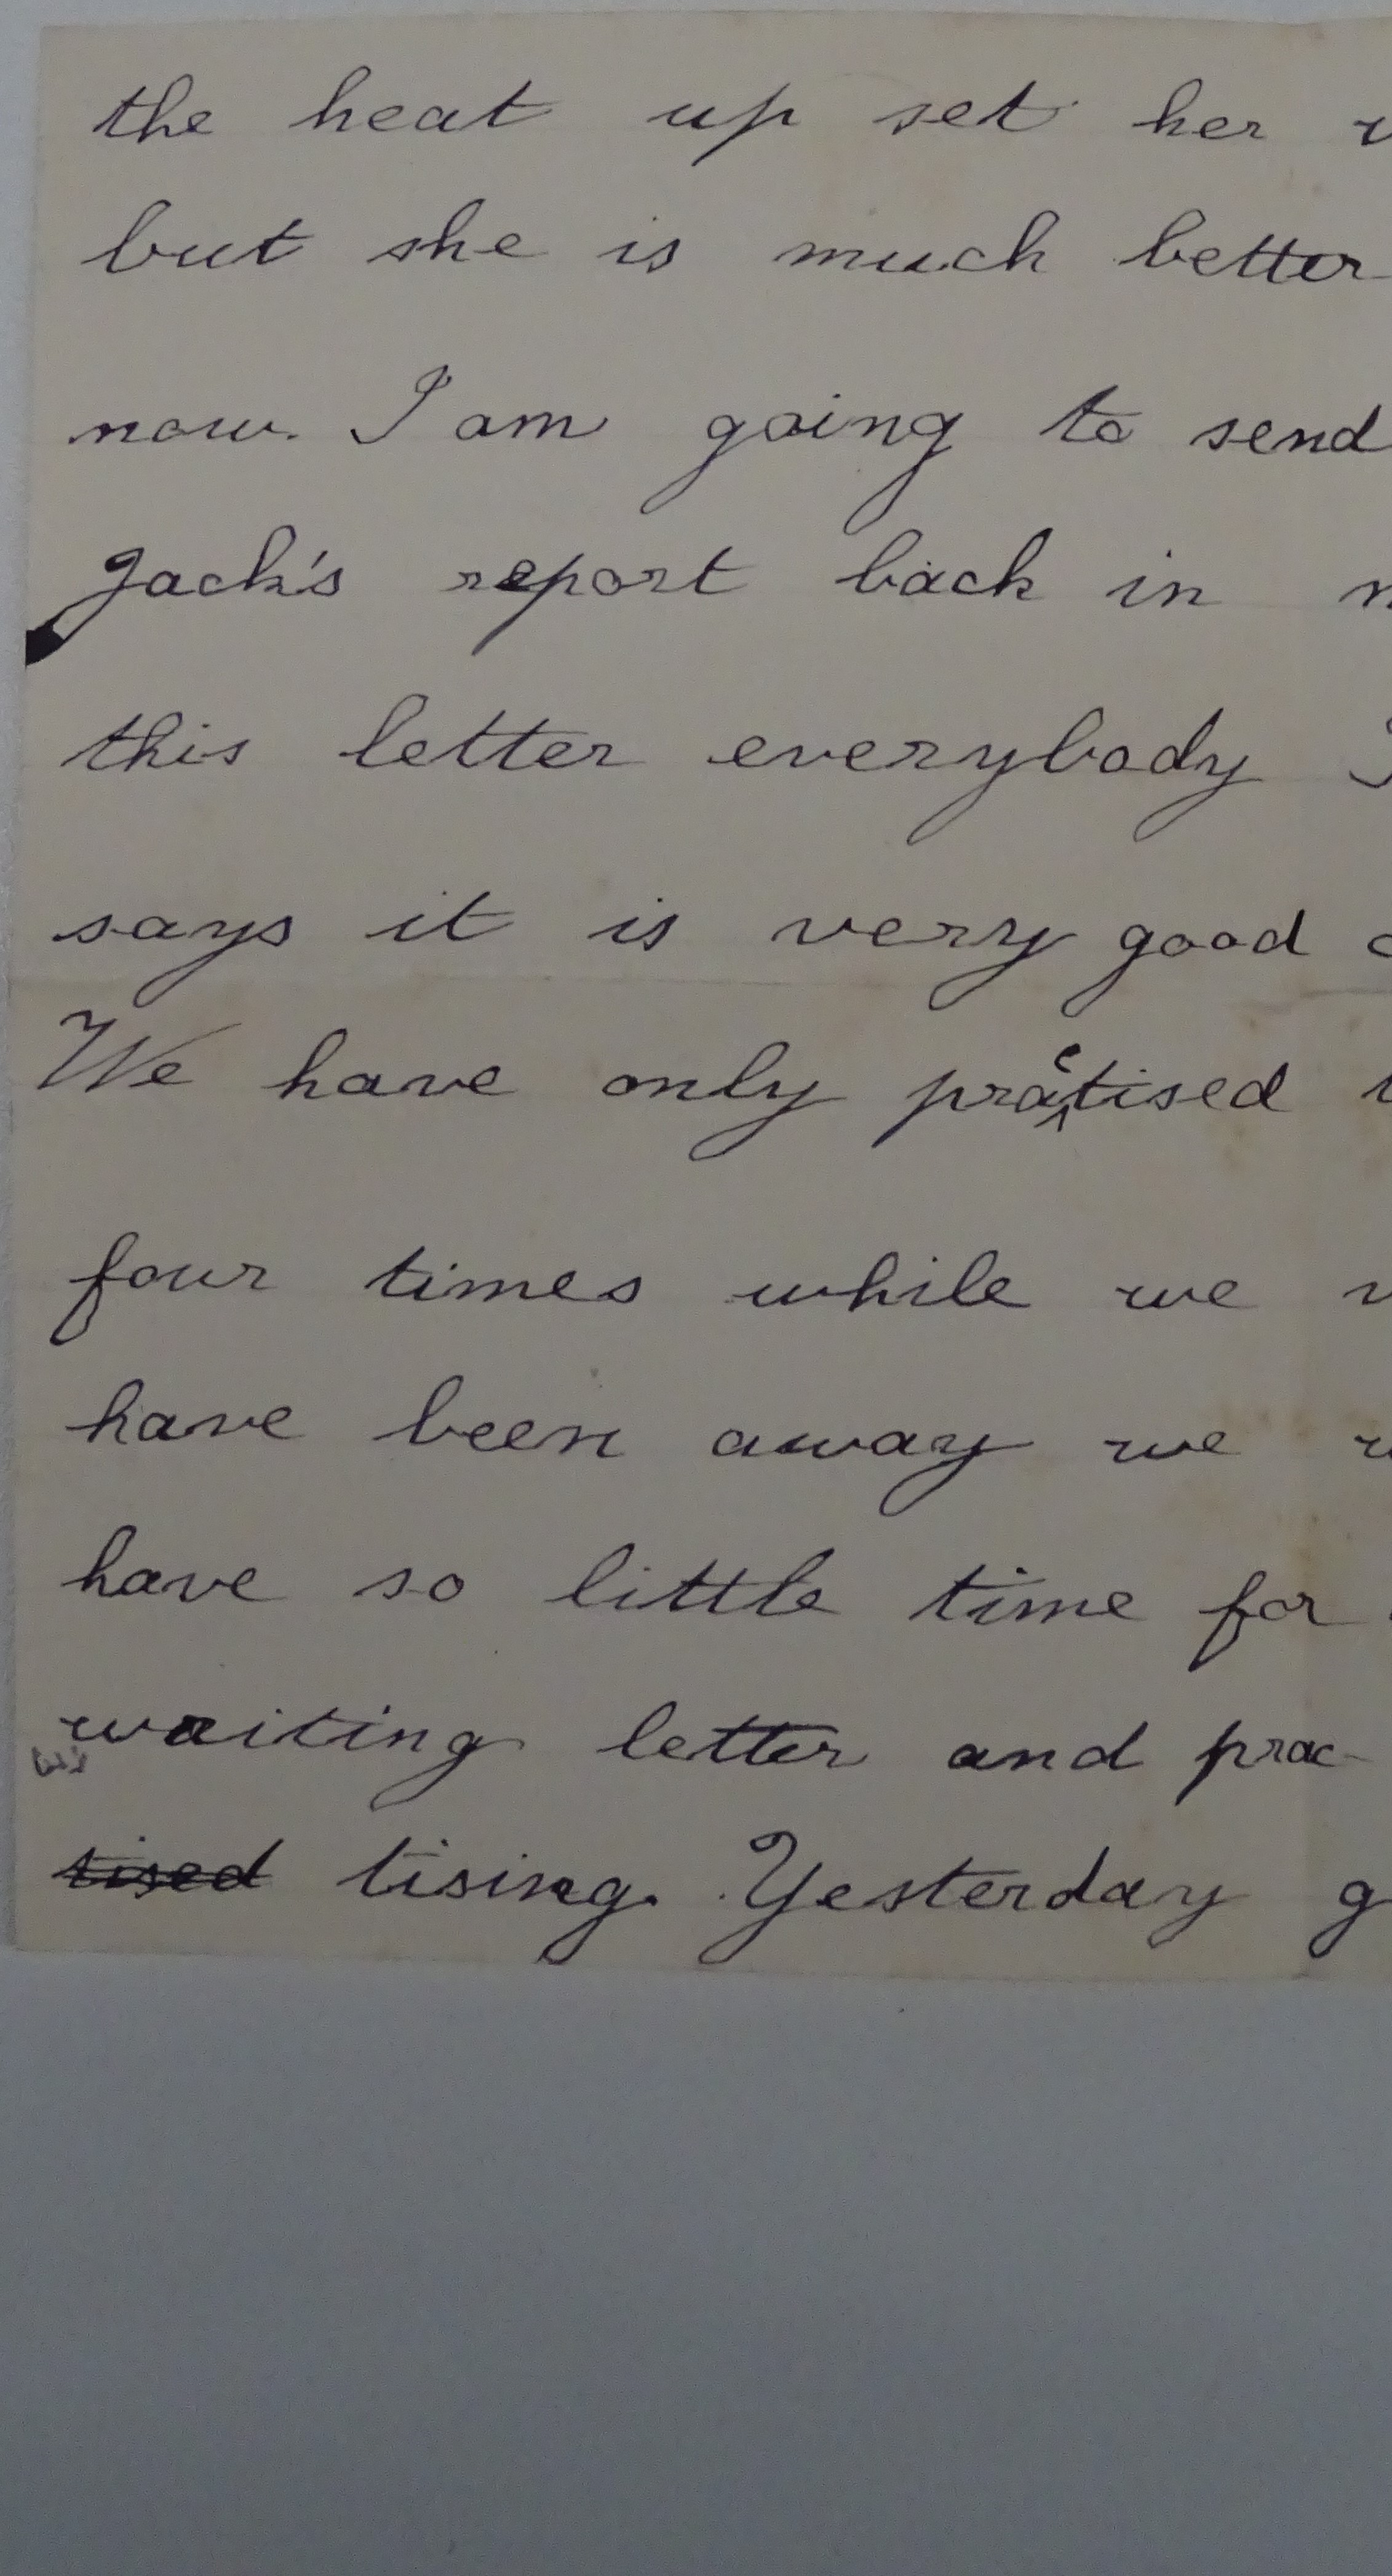 the heat up set her
but she is much better
now. I am going to send
Jack's report back in
this letter everybody
says it is very good
We have only practised
four times while we
have been away we
have so little time for
waiting letter and prac-
tised tising. Yesterday g